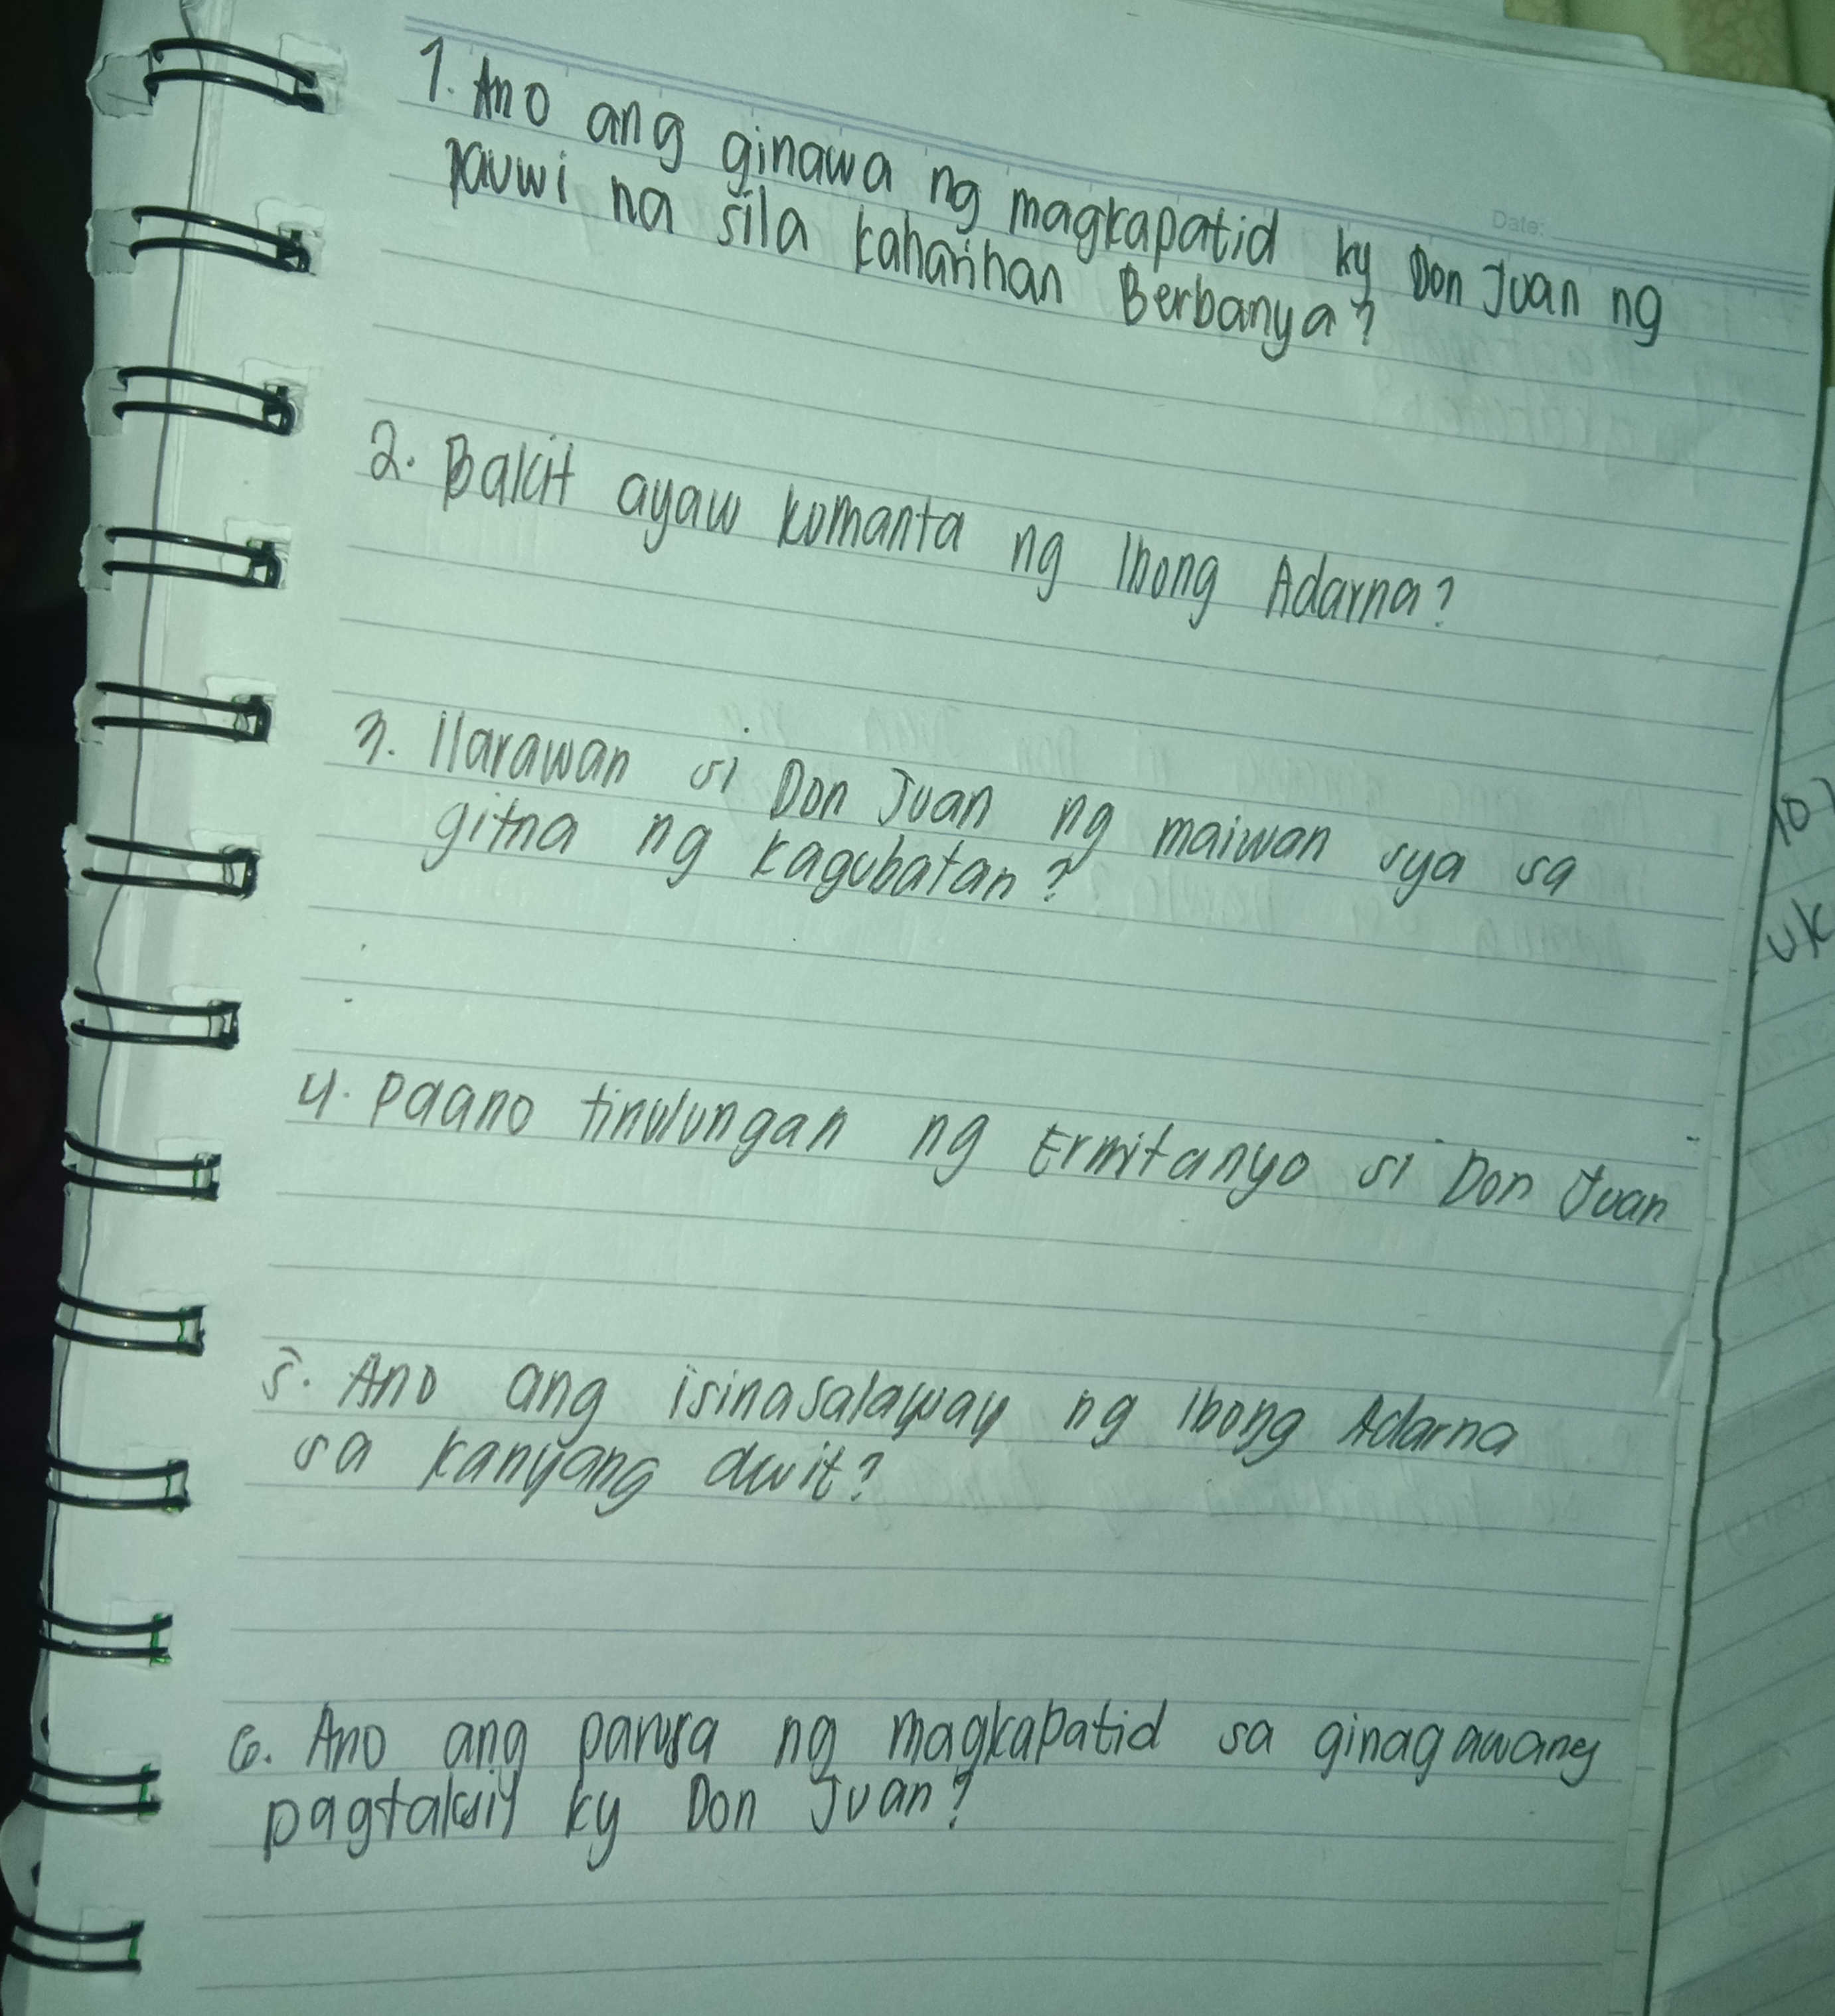 Date:
1. Ano ang ginawa ng magkapatid ky Don Juan ng
pauwi na sila kaharihan Berbanya?
2. Bakit ayaw kumanta ng Ibong Adarna?
3. Ilarawan si Don Juan ng maiwan sya sa
gitna ng kagubatan?
4. Paano tinulungan ng Ermitanyo si Don Juan
5. Ano ang isinasalaway ng Ibong Adarna
sa kanyang awit?
6. Ano ang parusa ng magkapatid sa ginagawang
pagtaksil ky Don Juan?